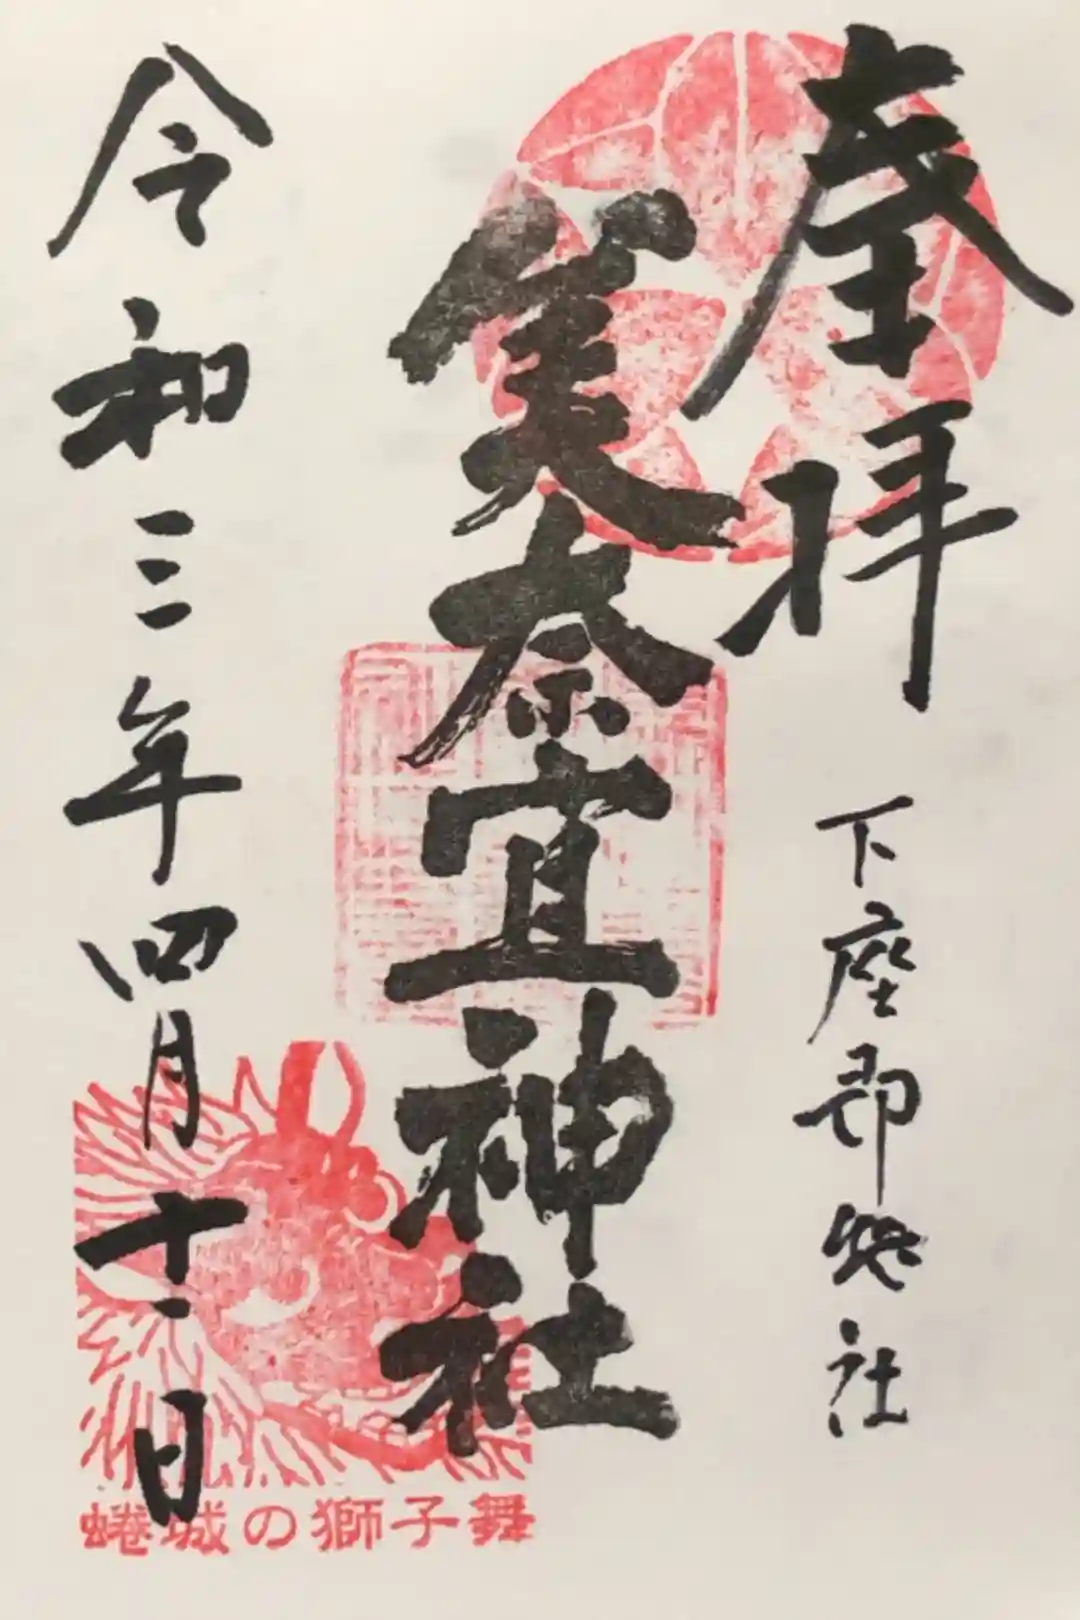 奉拝
下座郡惣社
美奈宜神社
令和三年四月十一日
蜷城の獅子舞